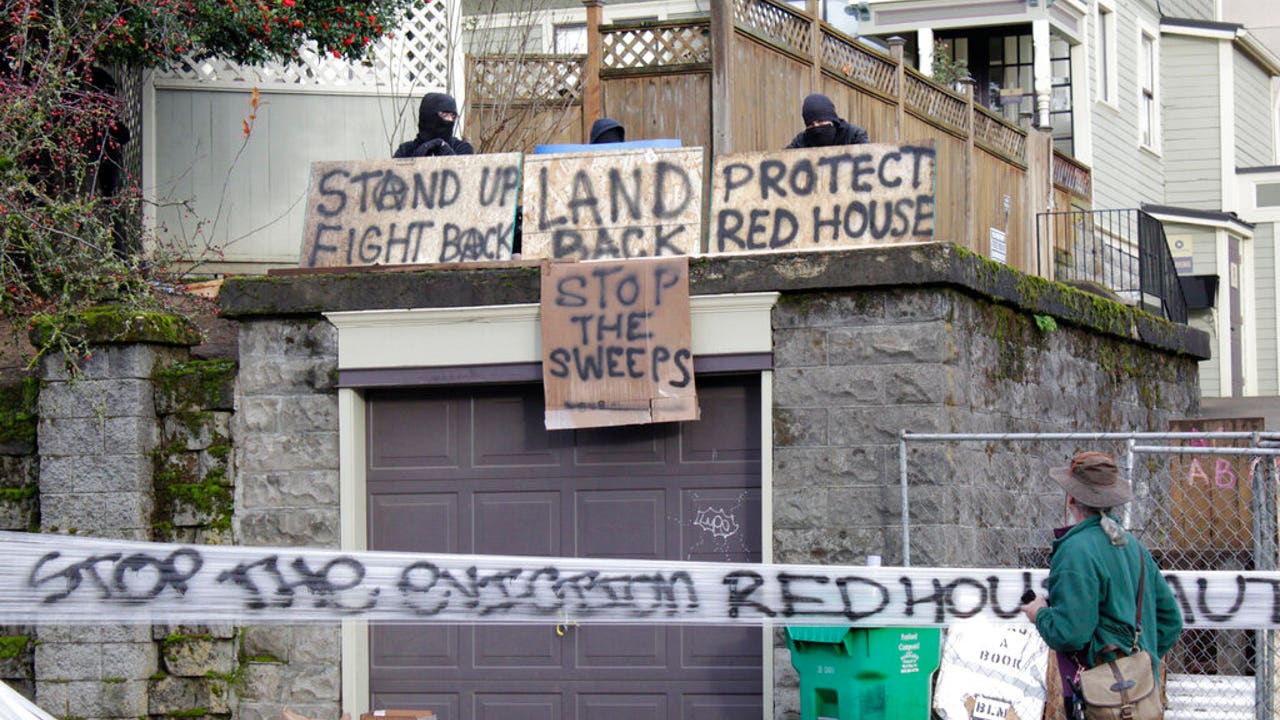 STAND UP
FIGHT BACK
LAND
BACK
PROTECT
RED HOUSE
STOP
THE
SWEEPS
STOP THE EVICTION RED HOU AUT
AB
A
BOOK
BLM